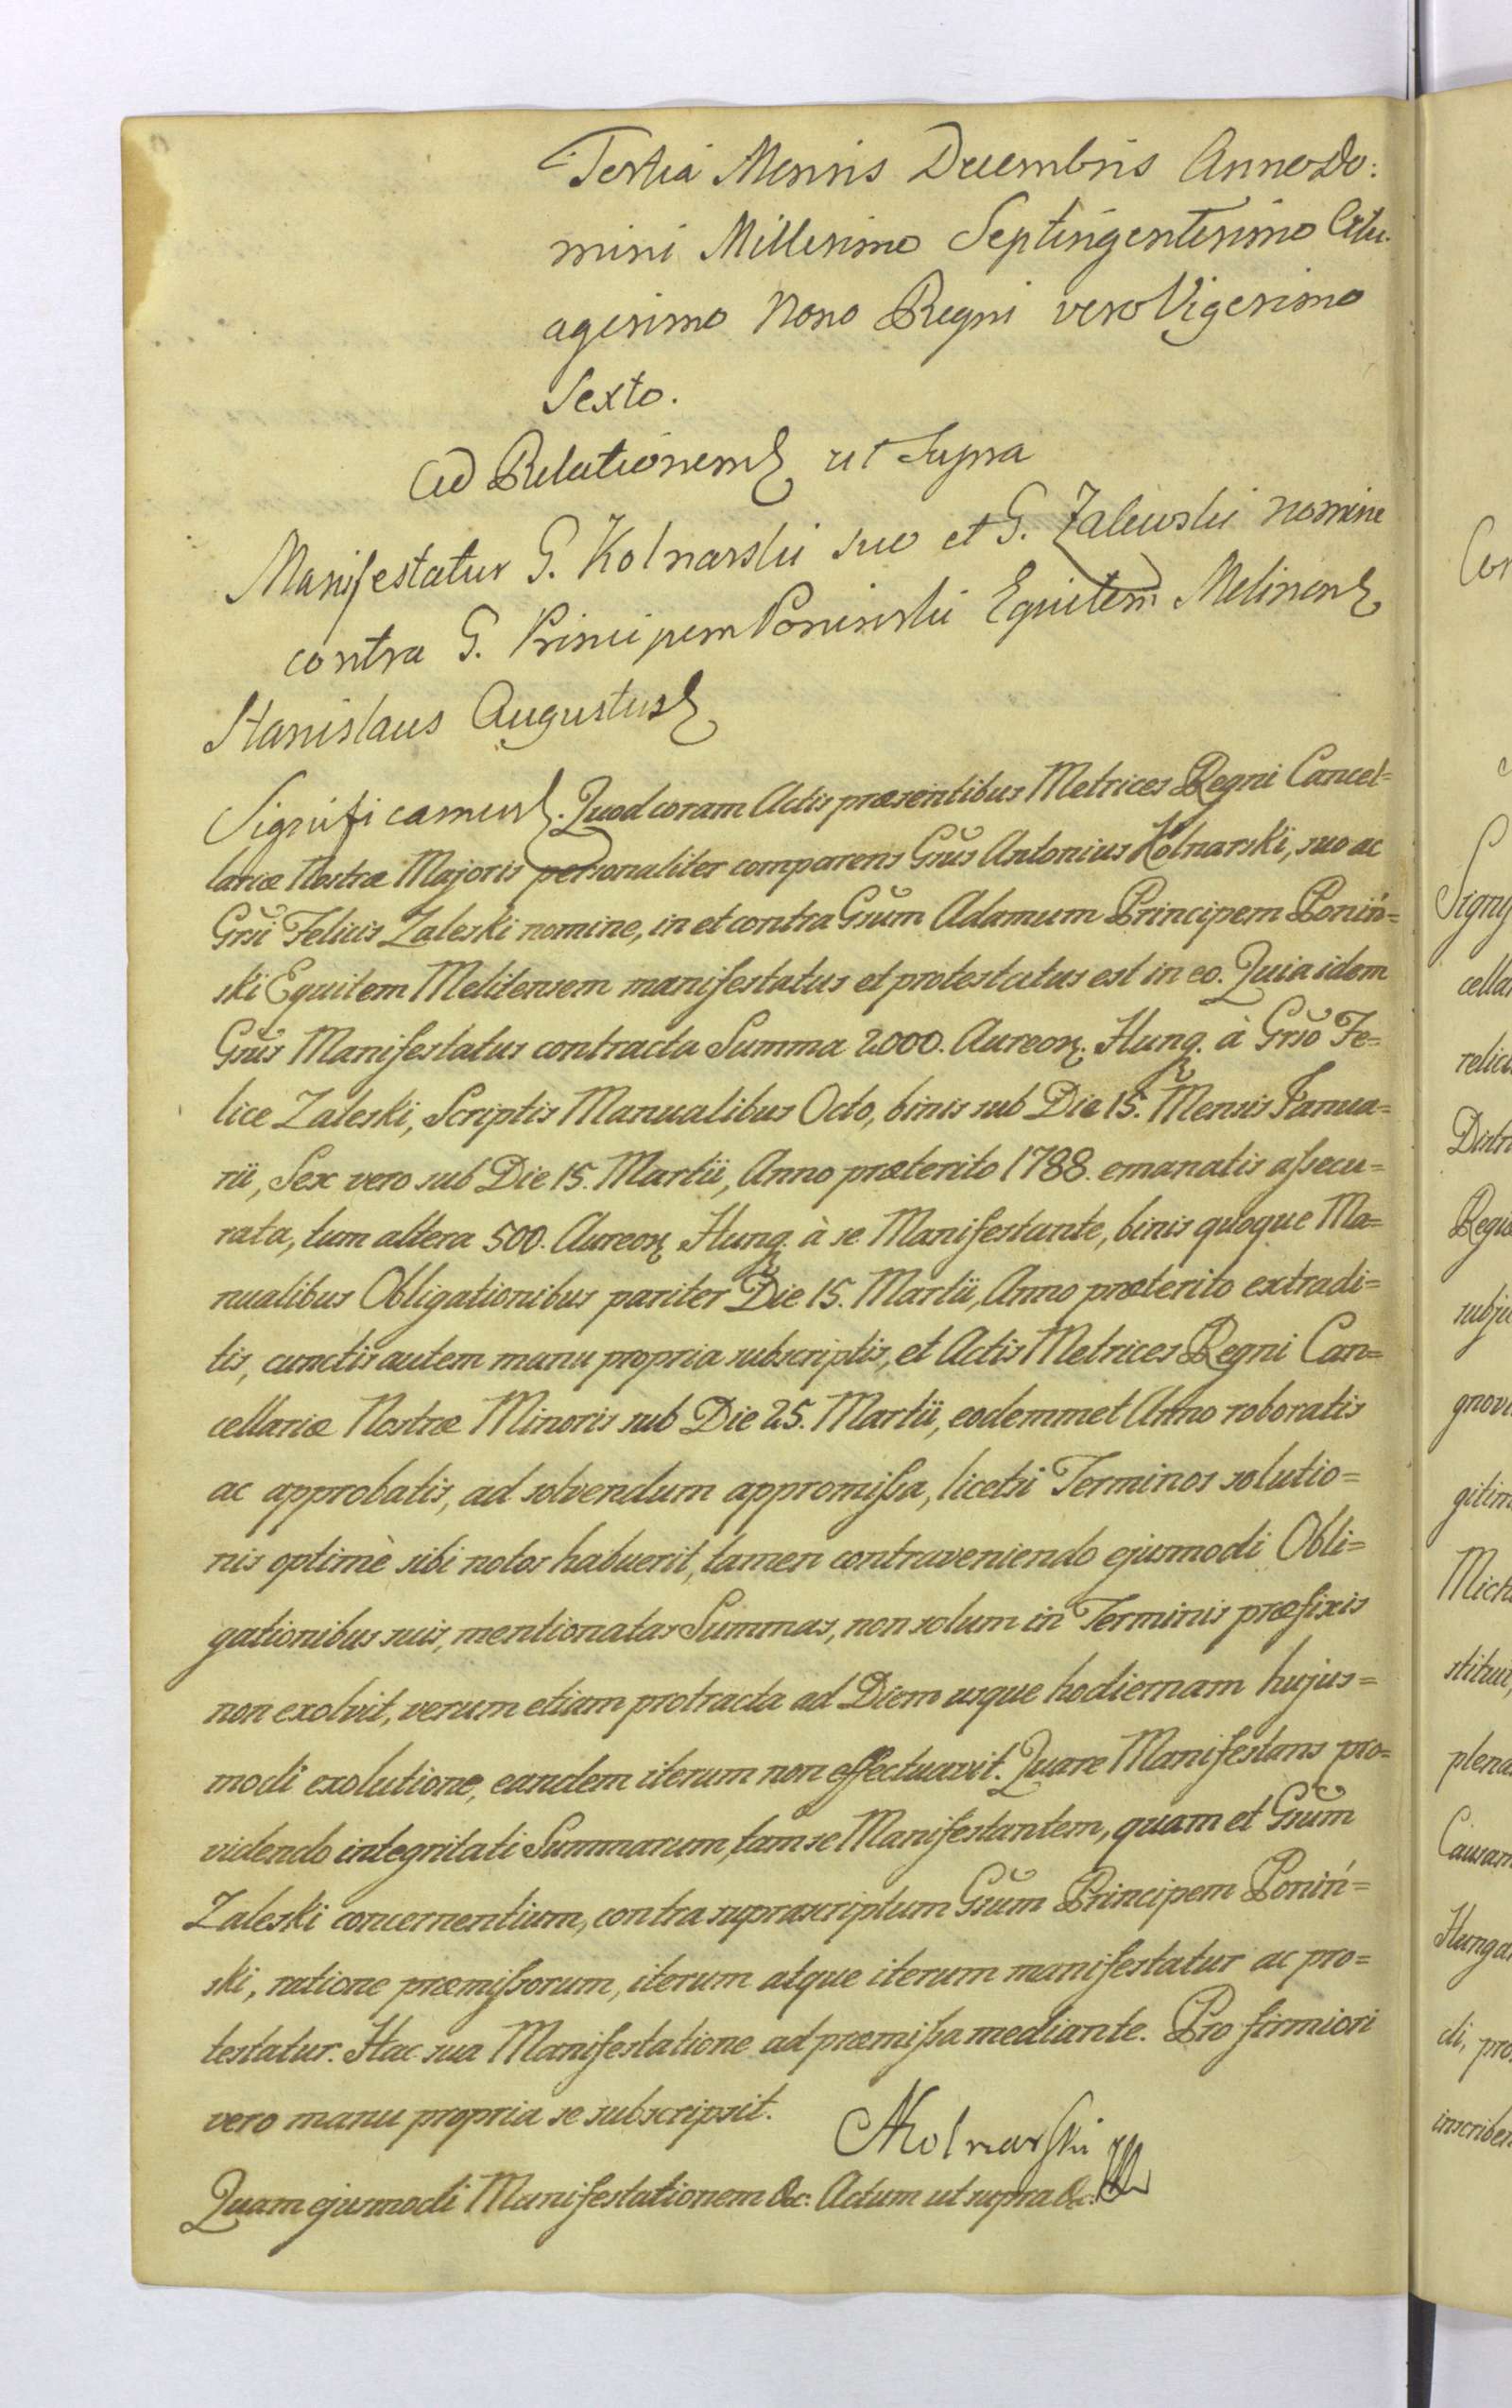 Tertia Mensis Decembris Anno Do:
mini Millesimo Septingentesimo Octu-
agesimo Nono Regni vero Vigesimo
Sexto.
Ad Relationem ut Supra
Manifestatur G. Kolnarski suo et G. Zalewski nomine
contra G. Principem Poninski Equitem
Stanislaus Augustus
Significamus. Quod coram Actis præsentibus Metrices Regni Cancel=
lariæ Nostræ Majoris personaliter comparens Gñsus Antonius Kolnarski, suo ac
Gñsi Felicis Zaleski nomine, in et contra Gñsum Adamum Principem Poniń=
ski Equitem Melitensem manifestatus et protestatus est in eo. Quia idem
Gñsus Manifestatus contracta Summa 2000. Aureor. Hung. à Gñso Fe=
lice Zaleski, Scriptis Manualibus Octo, binis sub Die 15. Mensis Janua=
rii, Sex vero sub Die 15. Martii, Anno præterito 1788. emanatis assecu=
rata, tum altera 500. Aureor. Hung. à se Manifestante, binis quoque Ma=
nualibus Obligationibus pariter Die 15. Martii, Anno præterito extradi=
tis, cunctis autem manu propria subscriptis, et Actis Metrices Regni Can=
cellariæ Nostræ Minoris sub Die 25. Martii, eodemmet Anno roboratis
ac approbatis, ad solvendum appromissa, licetsi Terminos solutio=
nis optimè sibi notos habuerit, tamen contraveniendo ejusmodi Obli=
gationibus suis, mentionatas Summas, non solum in Terminis præfixis
non exolvit, verum etiam protracta ad Diem usque hodiernam hujus=
modi exolutione, eandem iterum non effectuavit. Quare Manifestans pro=
videndo integritati Summarum, tam se Manifestantem, quam et Gñsum
Zaleski concernentium, contra suprascriptum Gñsum Principem Poniń=
ski, ratione præmissorum, iterum atque iterum manifestatur ac pro=
testatur. Hac sua Manifestatione ad præmissa mediante. Pro firmiori
vero manu propria se subscripsit.
AKolnarski
Quam ejusmodi Manifestationem &c. Actum ut supra &c.
Signi
cella
relic
Distr
Regi
subje
gnovi
gitim
Mich
stituit,
plena
Causam
Hunga
di, pro
inscriben